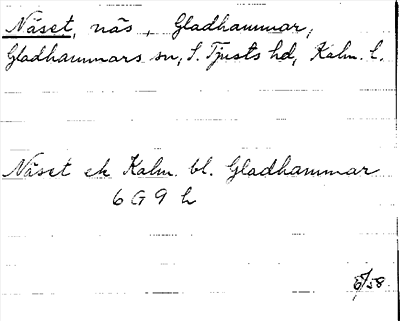 Näset, näs, Gladhammar,
Gladhammars sn, S. Tjusts hd, Kalm. l.
Näset ek Kalm. bl. Gladhammar
6 G 9 h
6/58